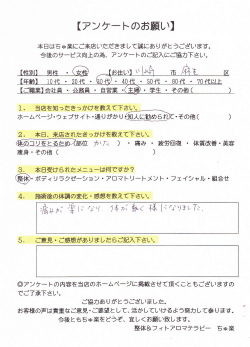 【アンケートのお願い】
本日はちゅ楽にご来店いただきまして誠にありがとうございます。
今後のサービス向上の為、アンケートのご記入にご協力下さい。
【性別】 男性 ・ 女性 【お住い】川崎 市 麻生 区
【年齢】 10代 ・ 20代 ・ 30代 ・ 40代 ・ 50代 ・ 60代 ・ 70代以上
【ご職業】会社員 ・ 公務員 ・ 自営業 ・ 主婦 ・ 学生 ・ その他( )
1. 当店を知ったきっかけを教えて下さい。
ホームページ・ウェブサイト・通りがかり・知人に勧められて・その他( )
2. 本日、来店されたきっかけを教えて下さい。
体のコリをとるため(部位 かた ) ・ 痛み ・ 疲労回復 ・ 体質改善・美容
痩身・その他( )
3. 本日受けられたメニューは何ですか?
整体・ボディリラクゼーション・アロマトリートメント・フェイシャル・組合せ
4. 施術後の体調の変化・感想を教えて下さい。
痛みが楽になり 体が動く様になりました。
5. ご意見・ご感想がありましたらご記入下さい。
◎アンケートの内容を当店のホームページに掲載させて頂くこともございますの
でご了承下さい。
ご協力ありがとうございました。
お客様の声は貴重なご意見・ご要望として、活かしていけるよう努力して参ります。
今後ともちゅ楽をどうぞ、宜しくお願い致します。
整体&フィトアロマテラピー ちゅ楽